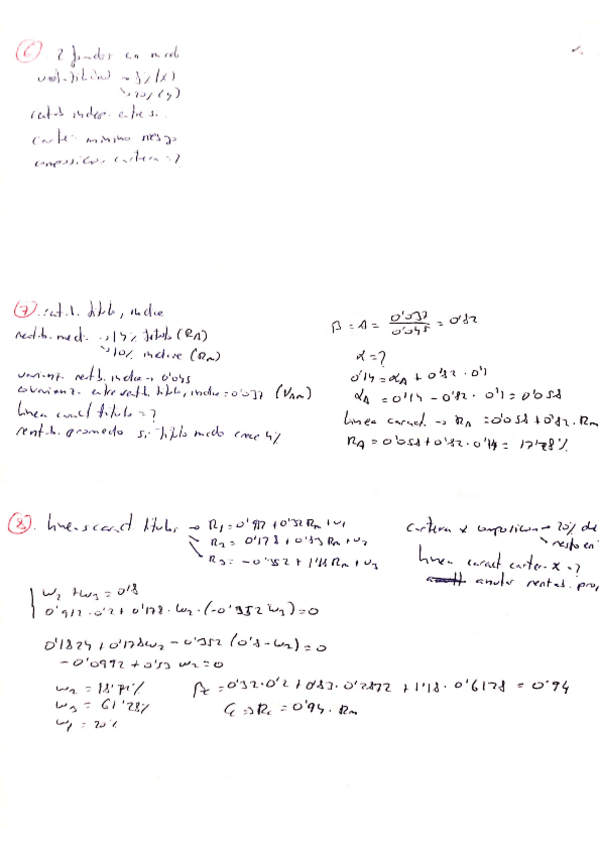 6
2 fondos en
volatilidad → 5% (x)
↘ 20% (y)
rentab. indep. entre sí
cartera mínimo riesgo
composición cartera = ?
7 rentab. título, índice
rentab. med. → 14% título (RA)
↘ 10% índice (Rm)
varianz. rentb. índice → 0'045
covarianz. entre rentb. título, índice = 0'037
línea caract título = ?
rentb. promedio si título crece 4%
B = A = 0'037 / 0'045 = 0'82
α = ?
0'14 = αA + 0'82 · 0'1
αA = 0'14 - 0'82 · 0'1 = 0'058
línea caract. → RA = 0'058 + 0'82 · Rm
RA = 0'058 + 0'82 · 0'14 = 17'28%
8 líneas caract títulos → R1 = 0'912 + 0'32 Rm + u1
R2 = 0'178 + 0'83 Rm + u2
R3 = -0'352 + 1'18 Rm + u3
cartera x composición → 20% de
resto en
línea caract cartera x = ?
anular rentab. pro
w2 + w3 = 0'8
0'912 · 0'2 + 0'178 · w2 · (-0'352 w3) = 0
0'1824 + 0'178 w2 - 0'352 (0'8 - w2) = 0
-0'0992 + 0'53 w2 = 0
w2 = 18'71%
w3 = 61'28%
w1 = 20%
βc = 0'32 · 0'2 + 0'83 · 0'2872 + 1'18 · 0'6128 = 0'94
C ⇒ Rc = 0'94 · Rm